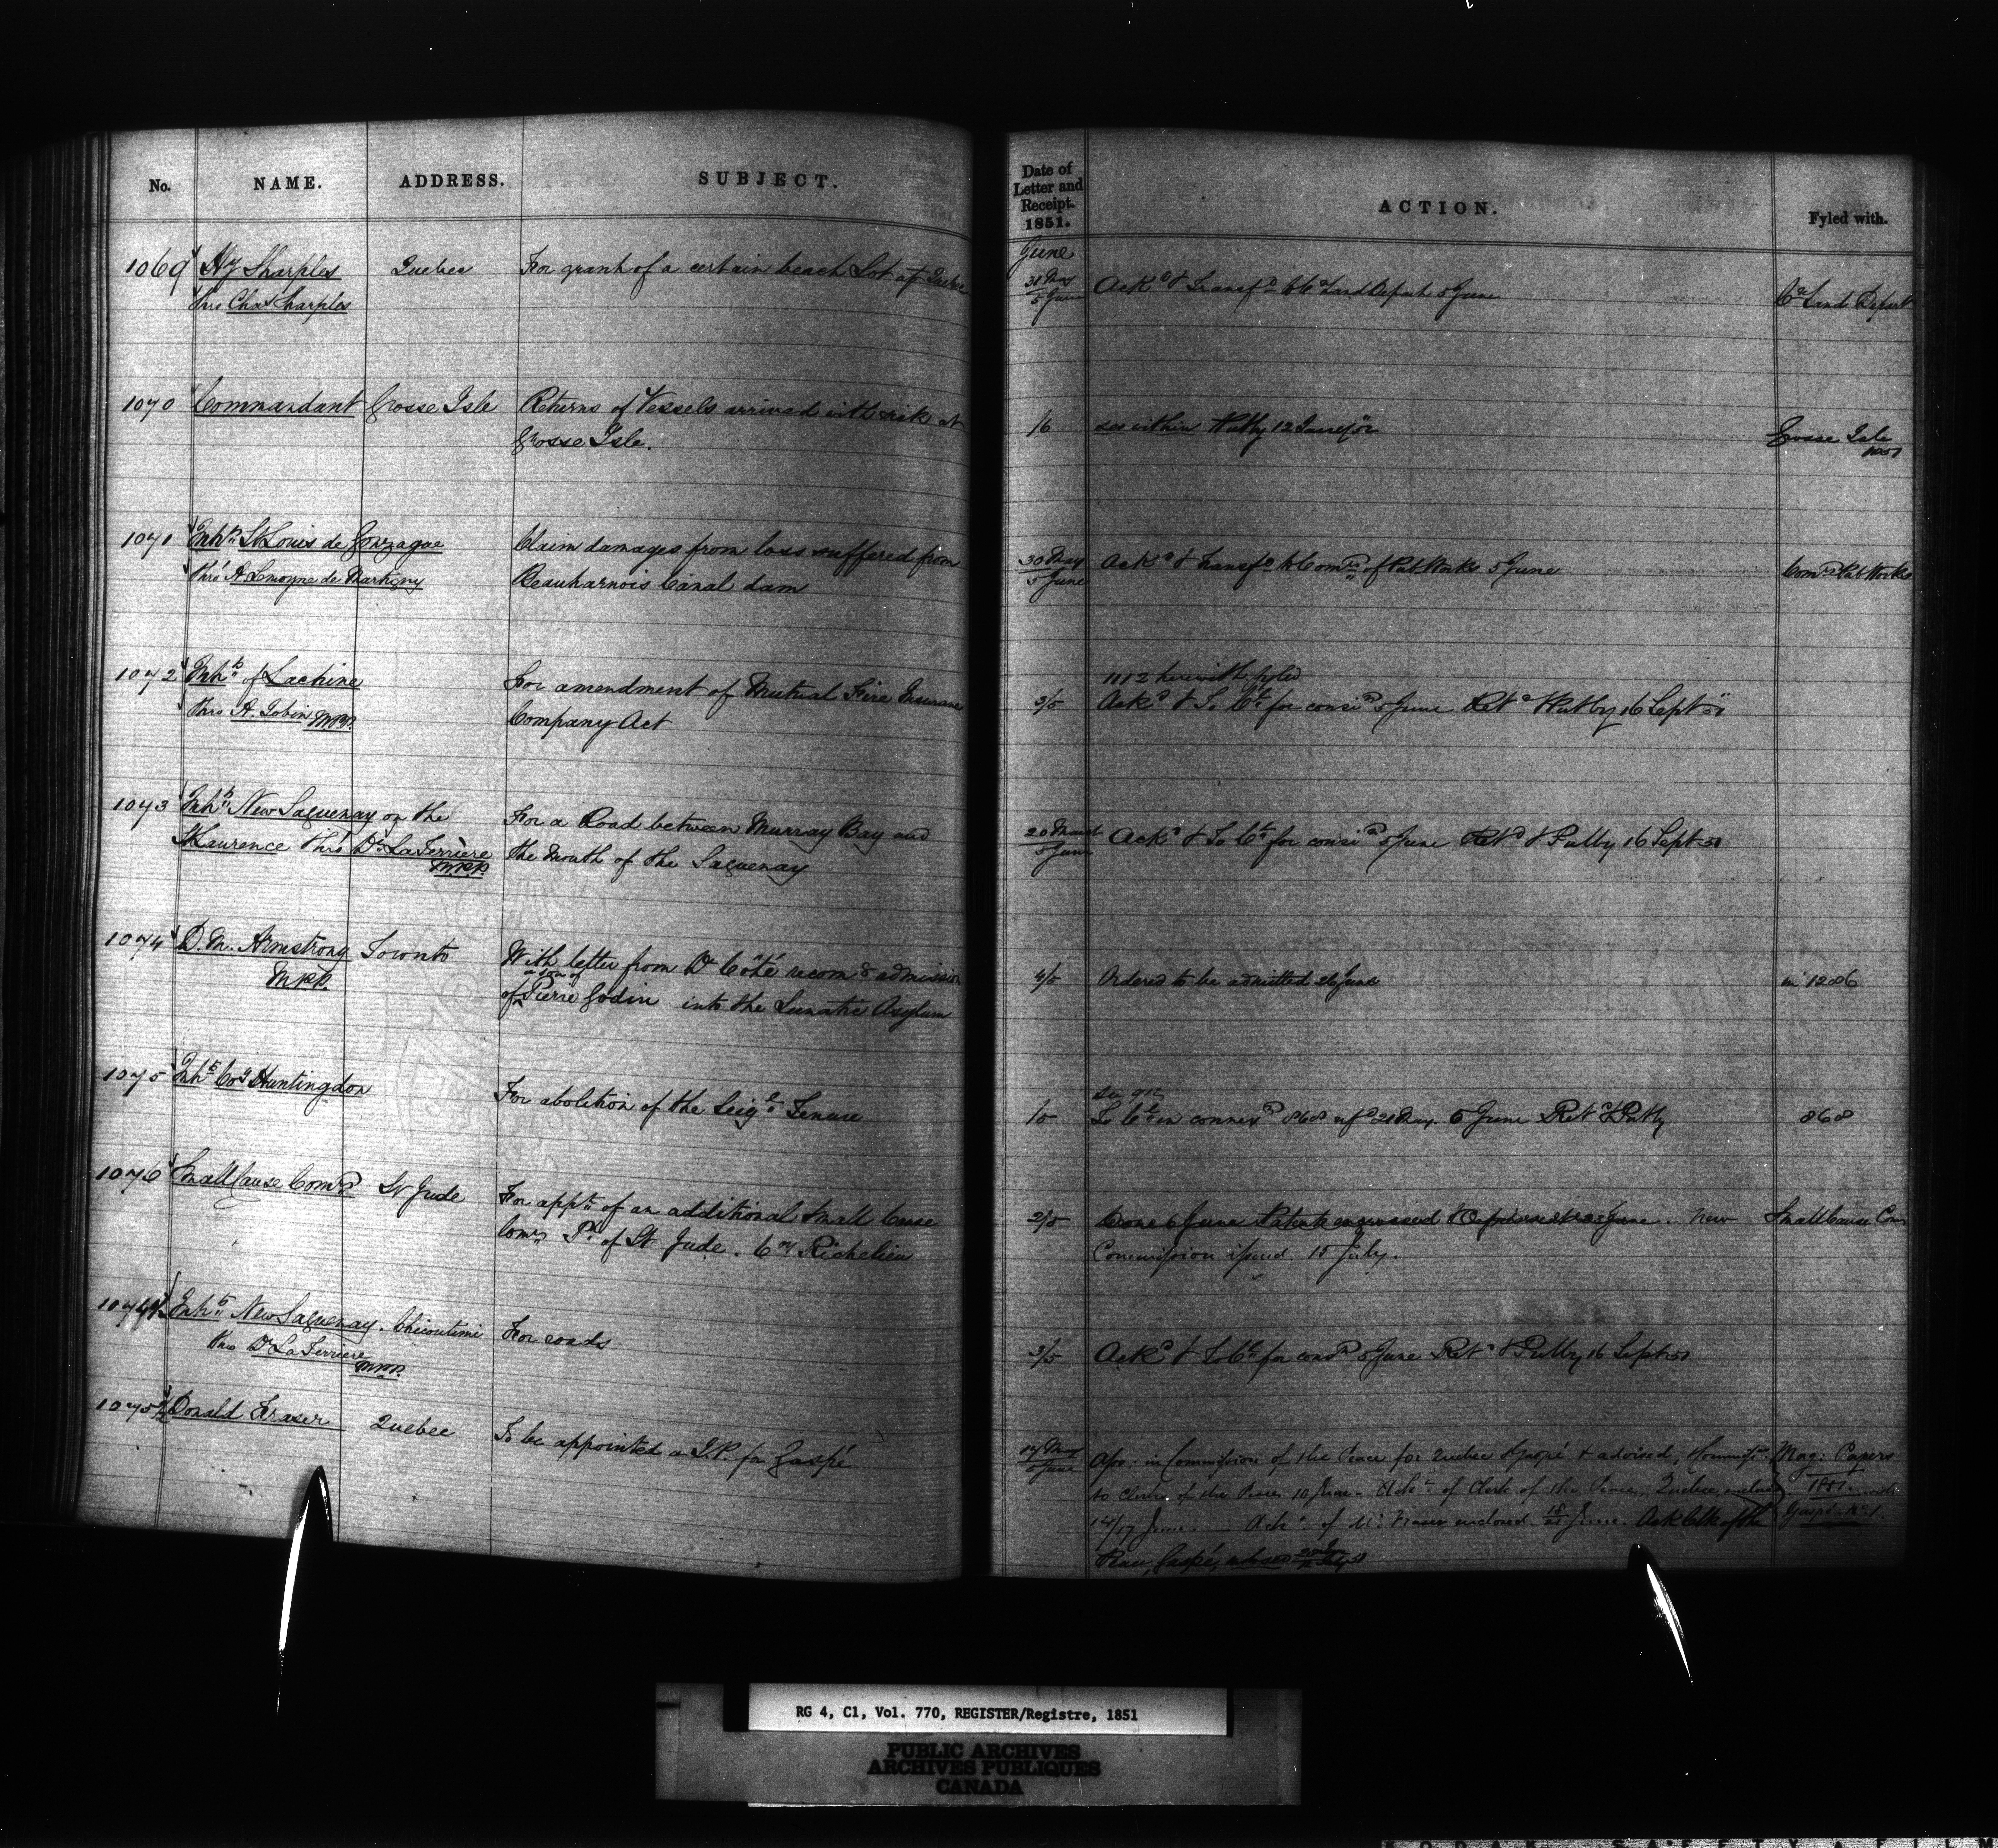 No. NAME. ADDRESS. SUBJECT.
1069 Hy Sharples Quebec For grant of a certain beach Lot at Quebec
thro Chas Sharples
1070 Commandant Grosse Isle Returns of Vessels arrived with sick at
Grosse Isle.
1071 Inhts St Louis de Gonzague Claim damages from loss suffered from
thro A Lemoyne de Martigny Beauharnois Canal dam
1072 Inhts of Lachine For amendment of Mutual Fire Insurance
thro A. Tobin M.P.P. Company Act
1073 Inhts New Saguenay on the For a Road between Murray Bay and
St Laurence thro Dr La Terrière the Mouth of the Saguenay
M.P.P.
1074 D. M. Armstrong Toronto With letter from Dr Côté recomg admission
M.P.P. of a son of Pierre Godin into the Lunatic Asylum
1075 Inhts Coy Huntingdon For abolition of the Seigl Tenure
1076 Small Cause Comrs St Jude For appt of an additional Small Cause
Comr Ph of St Jude. Coy Richelieu
1074½ Inhts New Saguenay. Chicoutimi For roads
thro Dr La Terriere
M.P.P.
1075½ Donald Fraser Quebec To be appointed a J.P. for Gaspé
Date of
Letter and
Receipt.
1851. ACTION. Fyled with.
June
31 May
5 June Ackd & Transfd to Cn Land Depart 5 June Cn Lands Depart
/6 see within Put by 12 Grosse Isle
1851
30 May
5 June Ackd & Transfd to Comrs of Pub Works 5 June Comrs Pub Works
1112 herewith fyled
3/5 Ackd & To Ct for consn 5 June Retd & Put by 16 Sept 51
20 March
5 June Ackd & To Ct for consn 5 June Retd & Put by 16 Sept 51
4/5 Ordered to be admitted 26 June in 1286
See 912
/5 To Ct in connexn 868 refd 21 May. 6 June Retd & Put by 868
2/5 June Patent engrossed June. New Small Cause Com
Commission issued 15 July.
3/5 Ackd & To Ct for consn 5 June Retd & Put by 16 Sept 51
17 May
5 June App: in Commission of the Peace for Quebec & Gaspé & advised, Mag: Papers
to Clerk of the Peace 10 June. of Clerk of the Peace, Quebec, 1851.
14/17 June. Ack of Mr Fraser enclosed June. Ack Clk of the Gaspé No 1.
Peace, Gaspé,
RG 4, C1, Vol. 770, REGISTER/Registre, 1851
PUBLIC ARCHIVES
ARCHIVES PUBLIQUES
CANADA